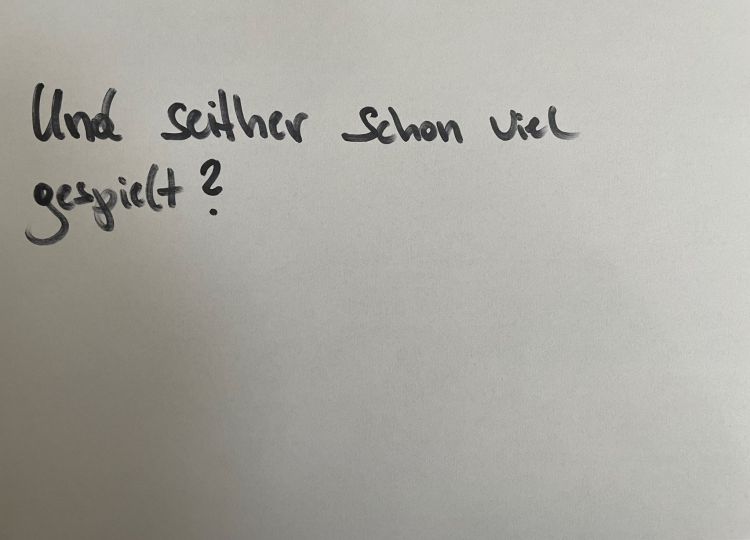 Und seither schon viel
gespielt?